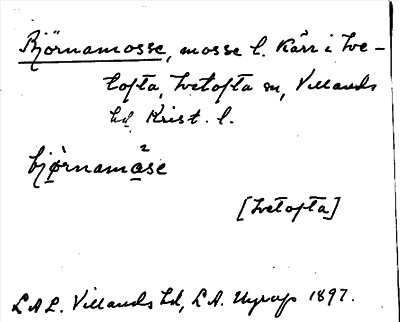 Björnamosse, mosse l. kärr i Ive-
tofta, Ivetofta sn, Villands
hd Krist. l.
bjørnamåse
[Ivetofta]
LAL. Villands hd, L.A. Nyrop 1897.